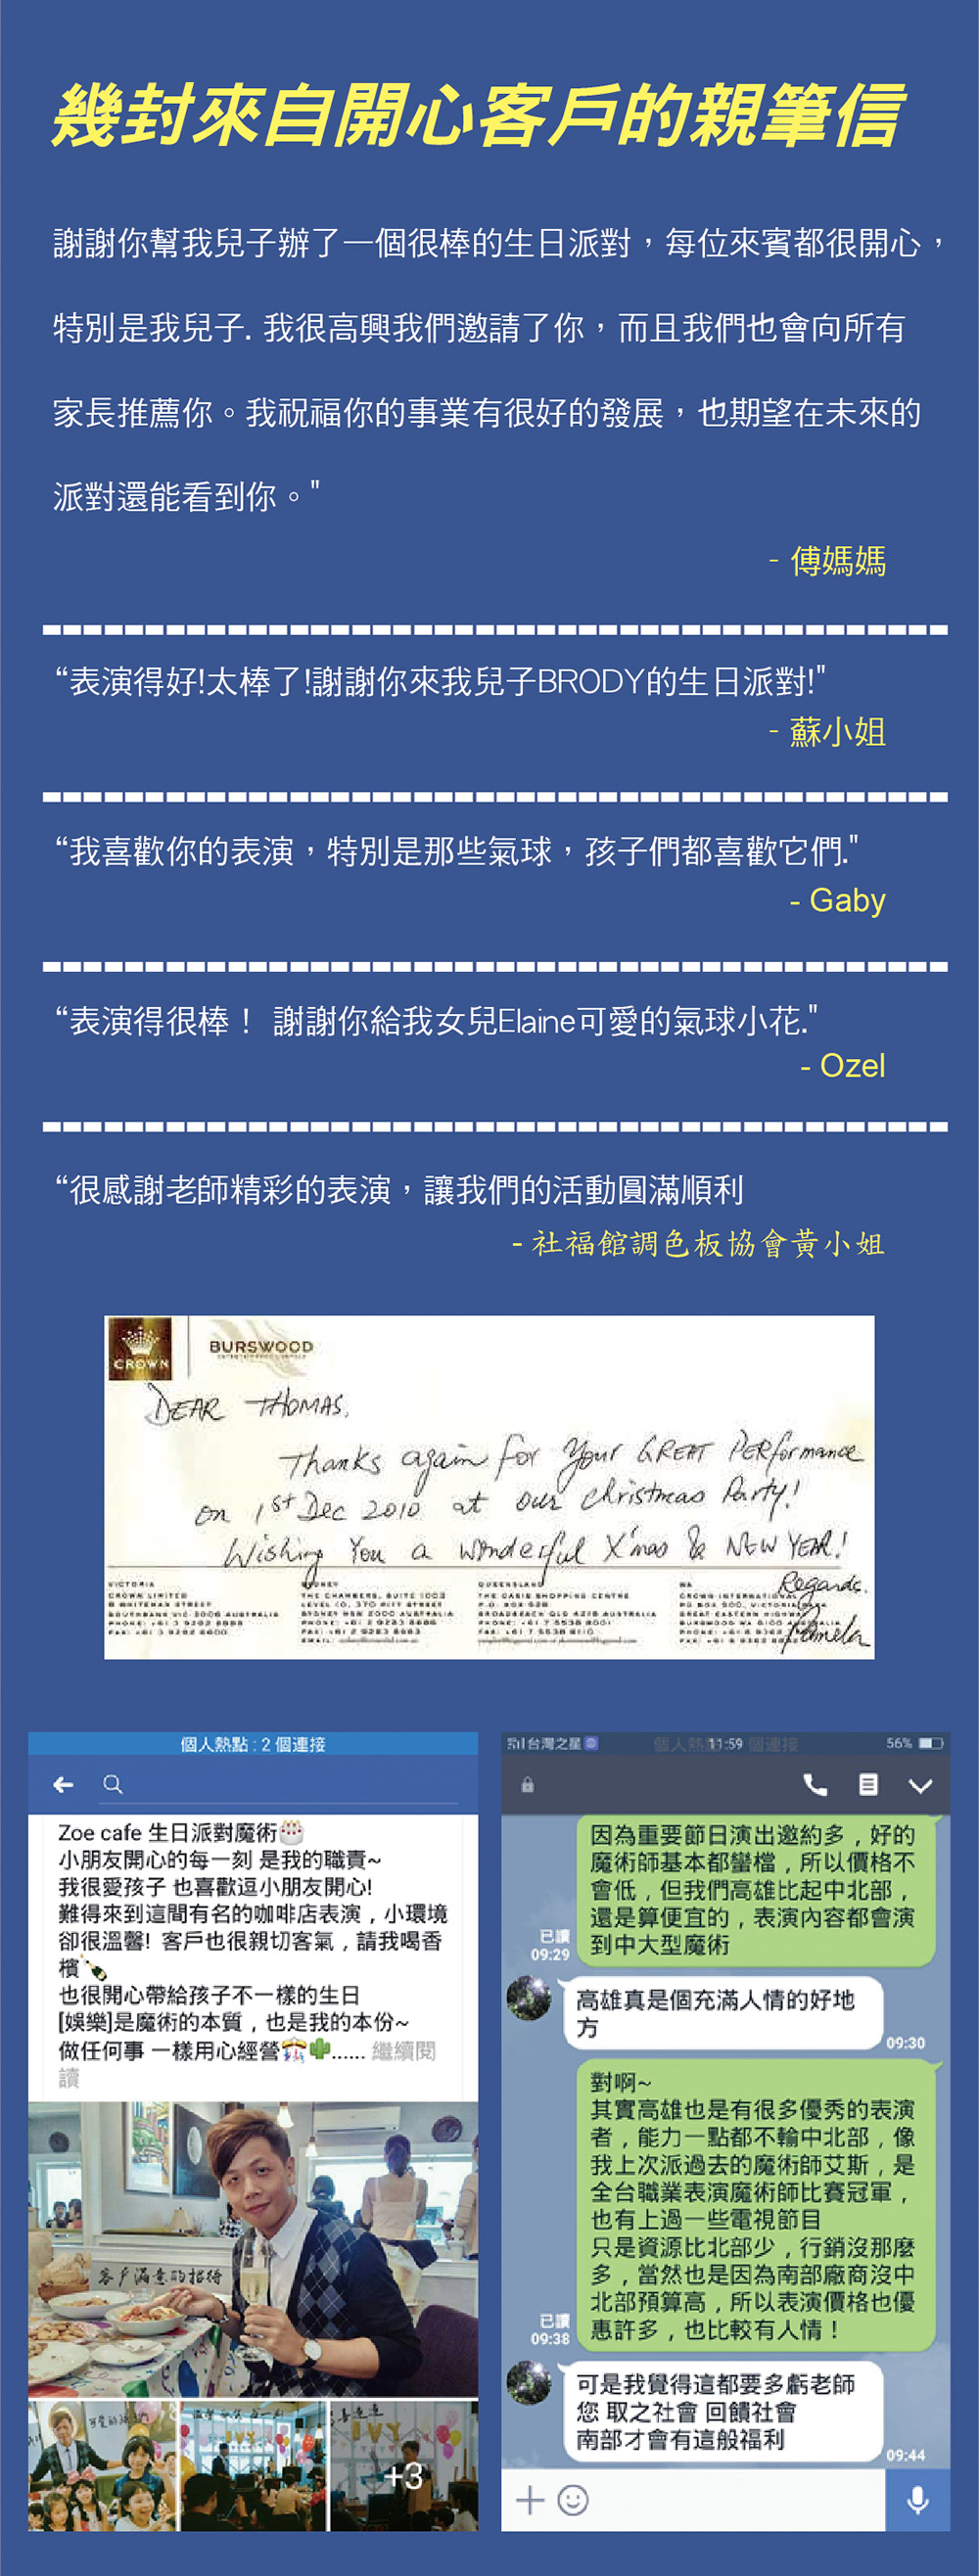 幾封來自開心客戶的親筆信
謝謝你幫我兒子辦了一個很棒的生日派對，每位來賓都很開心，
特別是我兒子. 我很高興我們邀請了你，而且我們也會向所有
家長推薦你。我祝福你的事業有很好的發展，也期望在未來的
派對還能看到你。"
- 傅媽媽
“表演得好!太棒了!謝謝你來我兒子BRODY的生日派對!"
- 蘇小姐
“我喜歡你的表演，特別是那些氣球，孩子們都喜歡它們."
- Gaby
“表演得很棒！ 謝謝你給我女兒Elaine可愛的氣球小花."
- Ozel
“很感謝老師精彩的表演，讓我們的活動圓滿順利
- 社福館調色板協會黃小姐
CROWN
BURSWOOD
DEAR THOMAS,
Thanks again for Your GREAT PERformance
on 1st Dec 2010 at our christmas Party!
Wishing You a wonderful X'mas & NEW YEAR!
Regards,
Pamela
VICTORIA
CROWN LIMITED
8 WHITEMAN STREET
SOUTHBANK VIC 3006 AUSTRALIA
SYDNEY
THE CHAMBERS, SUITE 1003
LEVEL 10, 370 PITT STREET
SYDNEY NSW 2000 AUSTRALIA
QUEENSLAND
THE OASIS SHOPPING CENTRE
BROADBEACH QLD 4218 AUSTRALIA
WA
個人熱點 : 2 個連接
Zoe cafe 生日派對魔術🎂
小朋友開心的每一刻 是我的職責~
我很愛孩子 也喜歡逗小朋友開心!
難得來到這間有名的咖啡店表演，小環境
卻很溫馨! 客戶也很親切客氣，請我喝香
檳🍾
也很開心帶給孩子不一樣的生日
[娛樂]是魔術的本質，也是我的本份~
做任何事 一樣用心經營🎊🌵...... 繼續閱
讀
客戶滿意的招待
IVY
IVY
+3
台灣之星
11:59
56%
因為重要節日演出邀約多，好的
魔術師基本都蠻檔，所以價格不
會低，但我們高雄比起中北部，
還是算便宜的，表演內容都會演
到中大型魔術
已讀
09:29
高雄真是個充滿人情的好地
方
09:30
對啊~
其實高雄也是有很多優秀的表演
者，能力一點都不輸中北部，像
我上次派過去的魔術師艾斯，是
全台職業表演魔術師比賽冠軍，
也有上過一些電視節目
只是資源比北部少，行銷沒那麼
多，當然也是因為南部廠商沒中
北部預算高，所以表演價格也優
惠許多，也比較有人情！
已讀
09:38
可是我覺得這都要多虧老師
您 取之社會 回饋社會
南部才會有這般福利
09:44